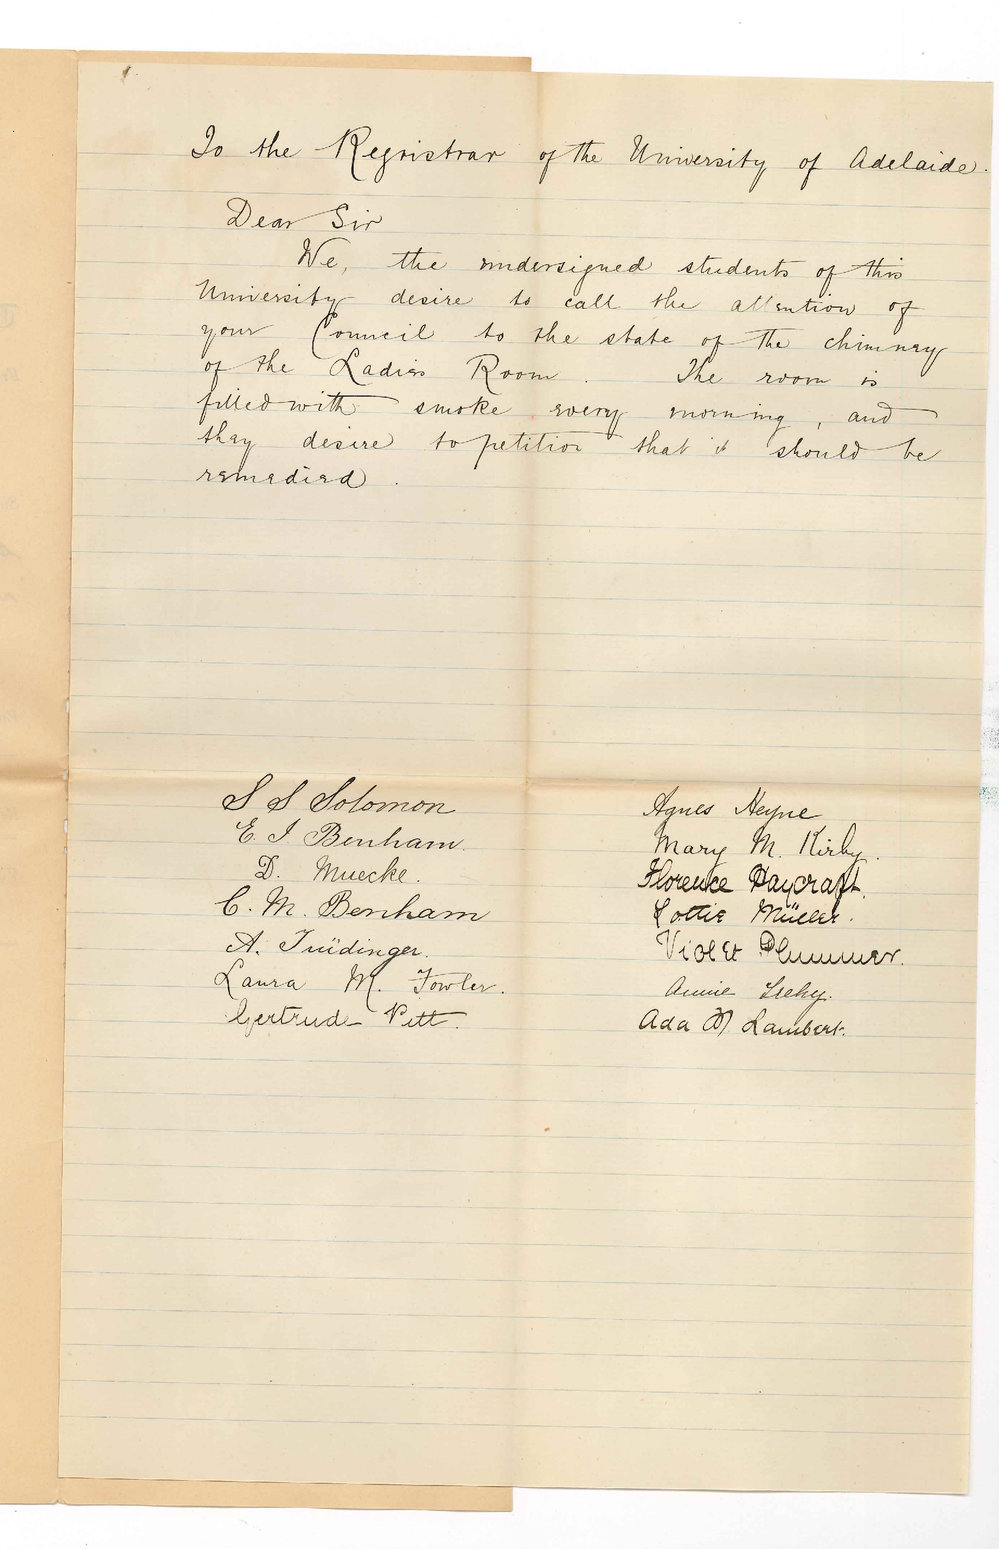 To the Registrar of the University of Adelaide.
Dear Sir
We, the undersigned students of this
University desire to call the attention of
your Council to the state of the chimney
of the Ladies Room. The room is
filled with smoke every morning, and
they desire to petition that it should be
remedied.
S S Solomon
E. I Benham.
D. Muecke.
C. M. Benham
A. Trüdinger.
Laura M. Fowler.
Gertrude Pitt.
Agnes Heyne
Mary M. Kirby.
Florence Haycraft.
Lottie Müller.
Violet Plummer.
Annie
Ada M Lambert.